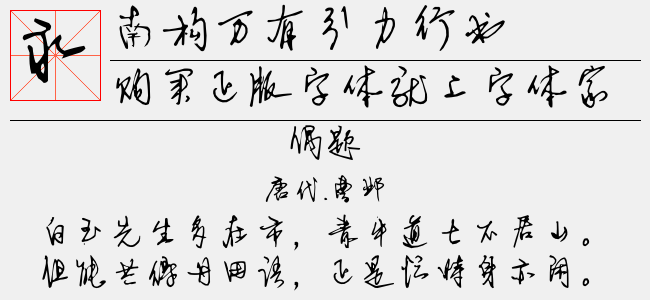 永
南构万有引力行书
购买正版字体就上字体家
偶题
唐代.曹邺
白玉先生多在市，青牛道士不居山。
但能共得丹田语，正是忙时身亦闲。